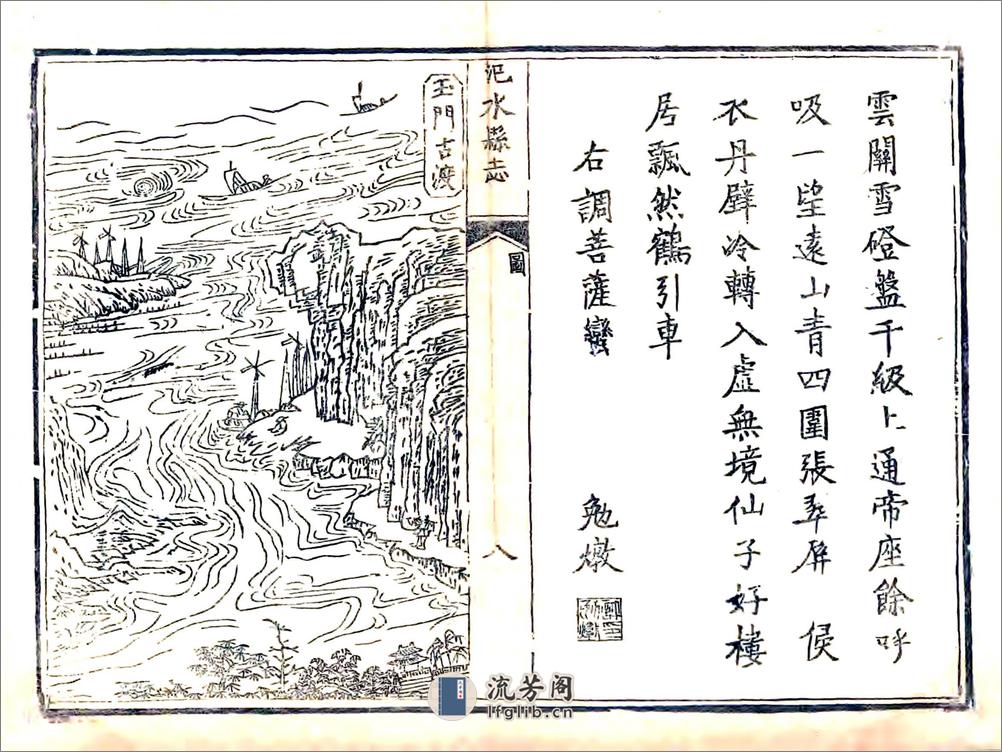 雲關雪磴盤千級上通帝座餘呼
吸一望遠山青四圍張翠屏 侯
衣丹壁冷轉入虛無境仙子好樓
居飄然鶴引車
右調菩薩蠻 勉燉
汜水縣志
圖
八
玉門古渡
流芳阁
lfglib.cn